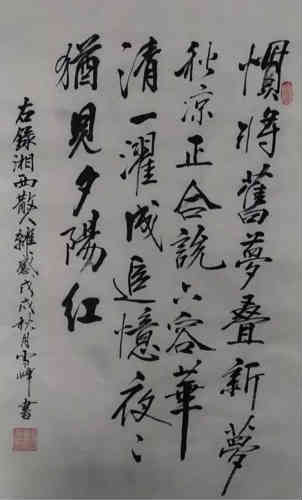 慣將舊夢叠新夢
秋凉正合說容華
清一濯成追憶夜々
猶見夕陽紅
右錄湘西散人雜感戊戌秋月雪峰書